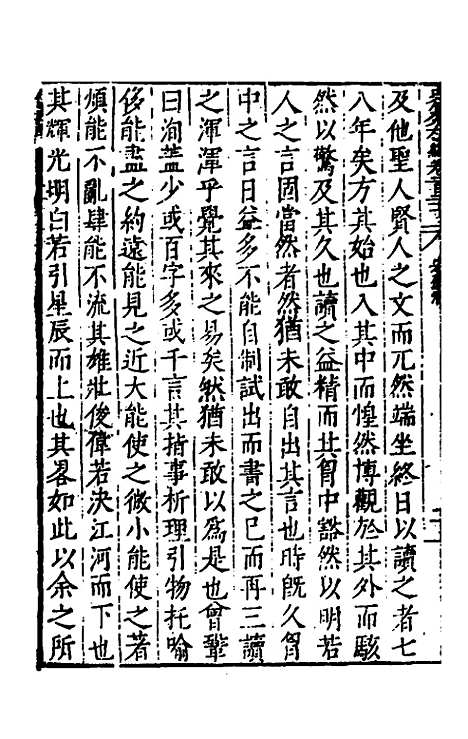 及他聖人賢人之文而兀然端坐終日以讀之者七
八年矣方其始也入其中而惶然博觀於其外而駭
然以驚及其久也讀之益精而其胷中豁然以明若
人之言固當然者然猶未敢自出其言也時旣久胷
中之言日益多不能自制試出而書之已而再三讀
之渾渾乎覺其來之易矣然猶未敢以爲是也曾鞏
曰洵蓋少或百字多或千言其指事析理引物托喻
侈能盡之約遠能見之近大能使之微小能使之著
煩能不亂肆能不流其雄壯俊偉若決江河而下也
其輝光明白若引星辰而上也其畧如此以余之所